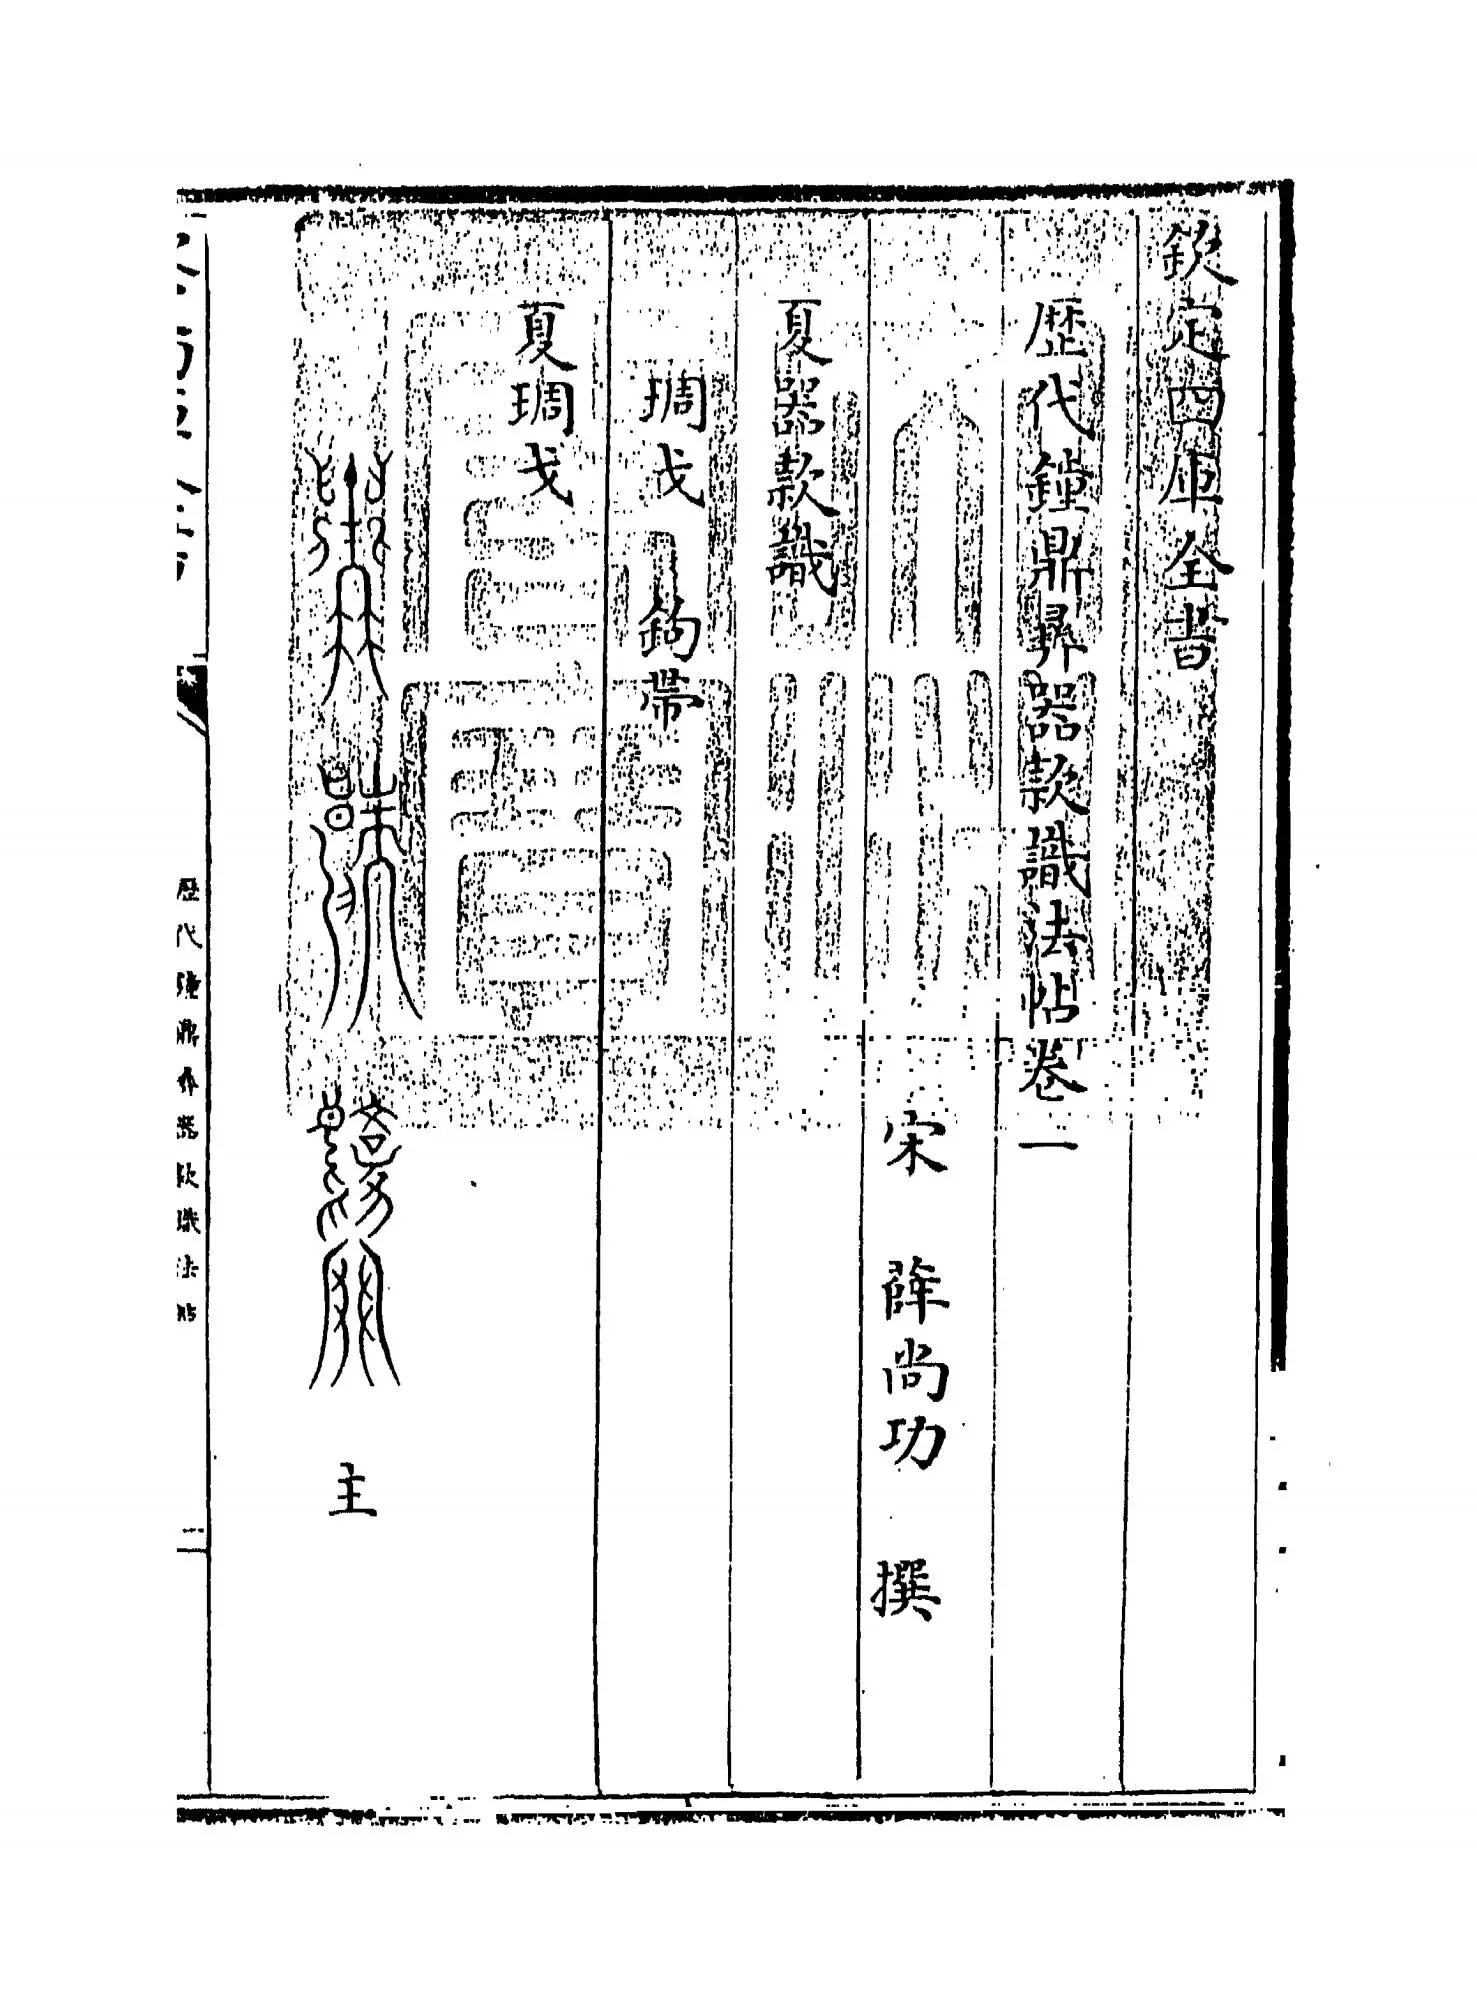 欽定四庫全書
歴代鐘鼎彞器款識法帖卷一
宋 薛尚功 撰
夏器款識
琱戈 鉤帶
夏琱戈
主
歴代鐘鼎彞器款識法帖
二